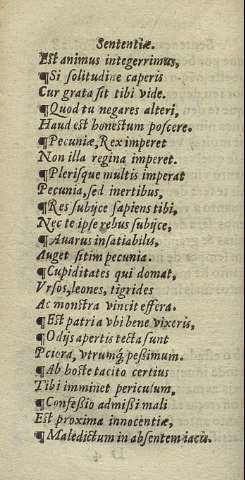 Sententiæ.
Est animus integerrimus,
¶Si solitudine caperis
Cur grata sit tibi vide.
¶Quod tu negares alteri,
Haud est honestum poscere.
¶Pecuniæ, Rex imperet
Non illa regina imperet.
¶Plerisque multis imperat
Pecunia, sed inertibus,
¶Res subijce sapiens tibi,
Nec te ipse rebus subijce,
¶Auarus insatiabilis,
Auget sitim pecunia.
¶Cupiditates qui domat,
Vrsos, leones, tigrides
Ac monstra vincit effera.
¶Est patria vbi bene vixeris,
¶Odijs apertis tecta sunt
Peiora, vtrumq́; pessimum.
¶Ab hoste tacito certius
Tibi imminet periculum,
¶Confessio admissi mali
Est proxima innocentiæ,
¶Maledictum in absentem iacis.